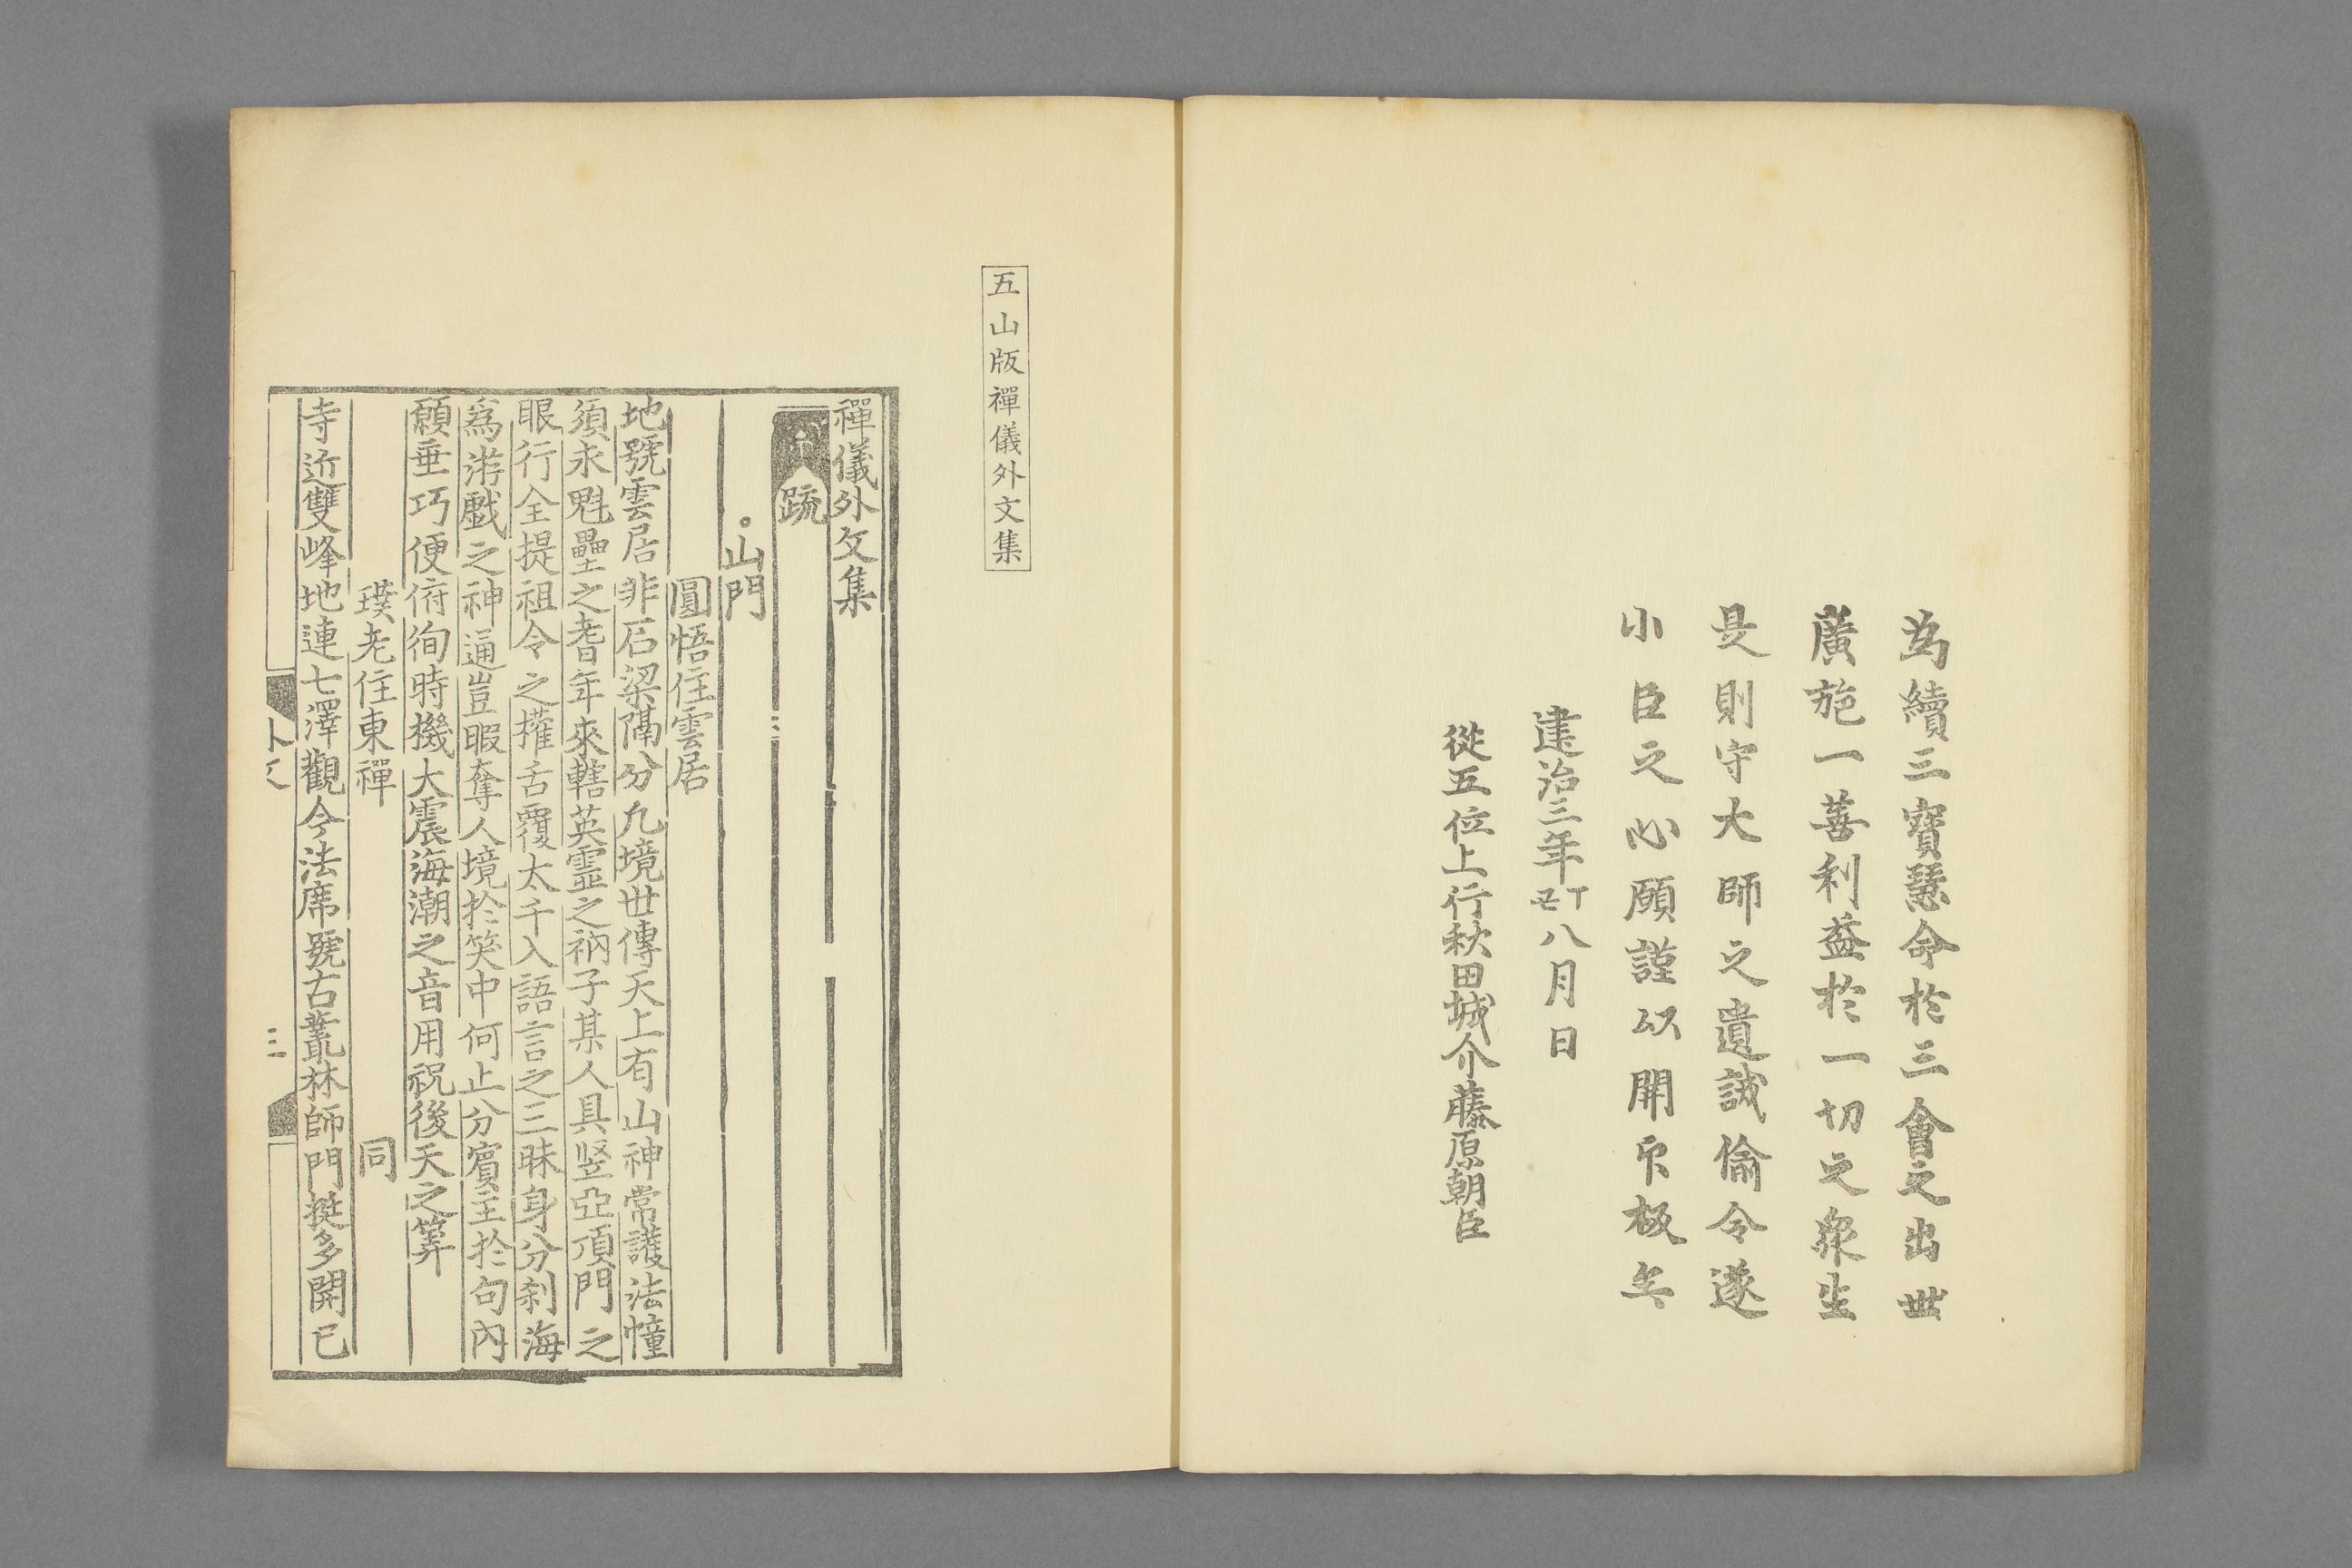 為續三寶慧命於三會之出世
廣施一善利益於一切之衆生
是則守大師之遺誡倫令遂
小臣之心願謹以開印板矣
建治三年丁丑八月日
從五位上行秋田城介藤原朝臣
五山版禪儀外文集
禪儀外文集
疏
山門
圓悟住雲居
地號雲居非石梁隔分凢境世傳天上有山神常護法幢
須求魁壘之耆年來轄英霊之衲子某人具竪亞頂門之
眼行全提祖令之權舌覆太千入語言之三昧身分刹海
爲游戱之神通豈暇奪人境扵笑中何止分賓主扵句內
願垂巧便俯徇時機大震海潮之音用祝後天之筭
璞老住東禪 同
寺近雙峰地連七澤觀今法席號古叢林師門挺多開已
外文
三